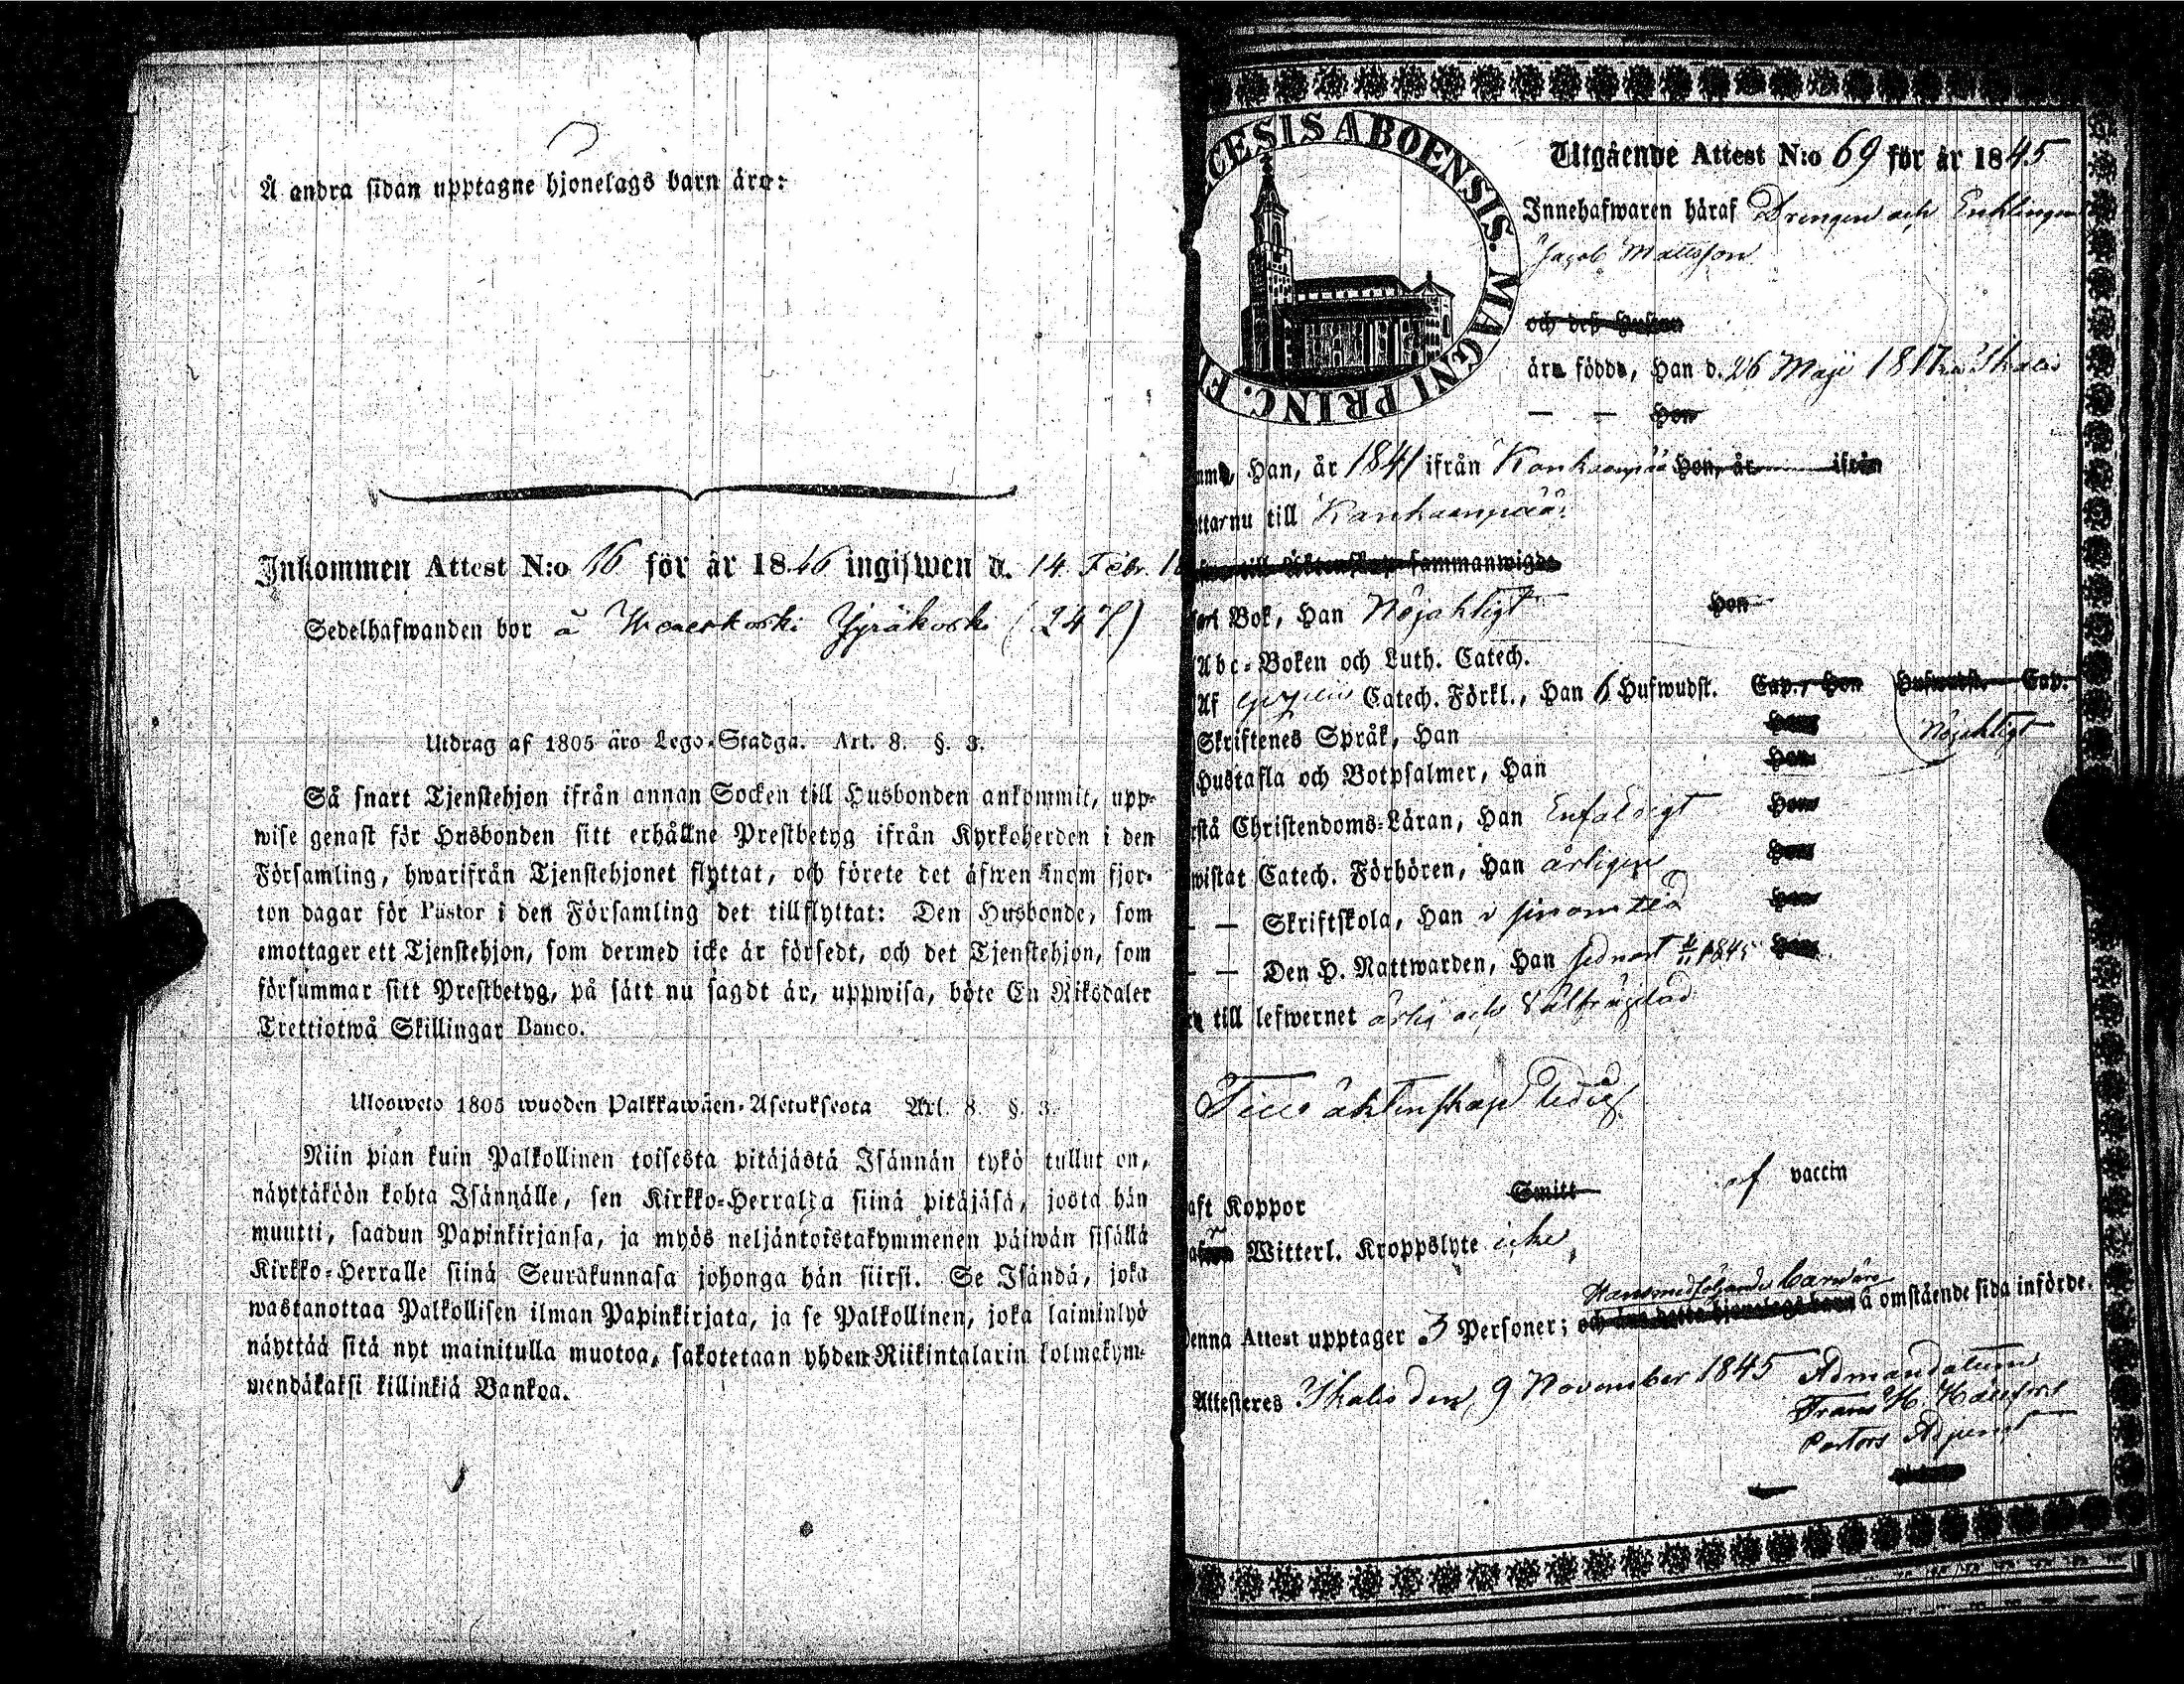 Å andra sidan upptagne hjonelags barn äro:
Inkommen Attest N:o för år 1846 ingifwen d. 14. Febr.
Sedelhafwanden bor å Jyräkoski (247)
Utdrag af 1805 års Lego-Stadga. Art. 8. §. 3.
Så snart Tjenstehjon ifrån annan Socken till Husbonden ankommit, upp-
wise genast för Husbonden sitt erhållne Prestbetyg ifrån Kyrkoherden i den
Församling, hwarifrån Tjenstehjonet flyttat, och förete det äfwen inom fjor-
ton dagar för Pastor i den Församling det tillflyttat: Den Husbonde, som
emottager ett Tjenstehjon, som dermed icke är försedt, och det Tjenstehjon, som
försummar sitt Prestbetyg, på sätt nu sagdt är, uppwisa, böte En Riksdaler
Trettiotwå Skillingar Banco.
Ulosweto 1805 wuoden Palkkawäen-Asetuksesta Art. 8. §. 3.
Niin pian kuin Palkollinen toisesta pitäjästä Isännän tykö tullut on,
näyttäköön kohta Isännälle, sen Kirkko-Herralta siinä pitäjäsä, josta hän
muutti, saadun Papinkirjansa, ja myös neljäntoistakymmenen päiwän sisällä
Kirkko-Herralle siinä Seurakunnasa johonga hän siirsi. Se Isändä, joka
wastanottaa Palkollisen ilman Papinkirjata, ja se Palkollinen, joka laiminlyö
näyttää sitä nyt mainitulla muotoa, sakotetaan yhden Riikintalarin kolmekym-
mendäkaksi killinkiä Bankoa.
CESIS ABOENSIS. MAGNI PRINC. FI
Utgående Attest N:o 69 för år 1845
Innehafwaren häraf Drengen och Enklingen
Jacob Mattsson
och deß Hustru
äro födde, Han d. 26 Maji 1817 i Ikalis
— — Hon
Han, år 1841 ifrån Kankaanpää Hon, år ifrån
nu till Kankaanpää
till Äktenskap sammanwigde
Bok, Han Nöjahligt Hon
Abc-Boken och Luth. Catech.
Af Catech. Förkl., Han 6 Hufwudst. Cap., Hon Hufwudst. Cap.
Skriftenes Språk, Han Hon Nöjahligt
Hustafla och Botpsalmer, Han Hon
Christendoms-Läran, Han Enfaldigt Hon
wistat Catech. Förhören, Han årligen Hon
— — Skriftskola, Han i sinom tid Hon
— — Den H. Nattwarden, Han sednast 1845 Hon
till lefwernet ärlig och Välfrägdad
Till äktenskap ledig
haft Koppor Smitt af vaccin
Witterl. Kroppslyte icke
Hans medföljande barn äro
Denna Attest upptager 3 Personer; och äro detta hjonelags barn å omstående sida införde.
Attesteres Ikalis den 9 November 1845 Ad mandatum
Frans H. Hällfors
Pastors Adjunct